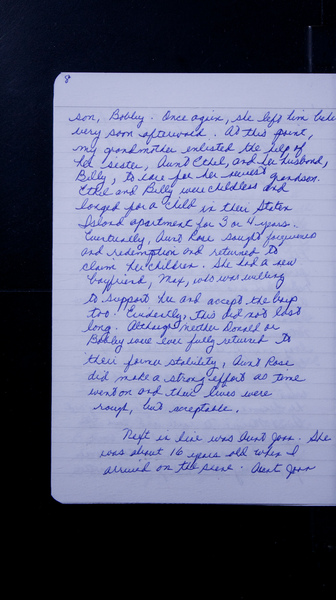 8
son, Bobby. Once again, she left him behi
very soon afterword. At this point,
my grandmother enlisted the help of
her sister, Aunt Ethel, and her husband,
Billy, to care for her newest grandson.
Ethel and Billy were childless and
longed for a child in their Staten
Island apartment for 3 or 4 years.
Eventually, Aunt Rose sought forgiveness
and redemption and returned to
claim her children. She had a new
boyfriend, Max, who was willing
to support her and accept the boys
too. Evidently, this did not last
long. Although neither Donald or
Bobby were ever fully returned to
their former stability, Aunt Rose
did make a strong effort as time
went on and their lives were
rough, but acceptable.
Next in line was Aunt Joan. She
was about 16 years old when I
arrived on the scene. Aunt Joan